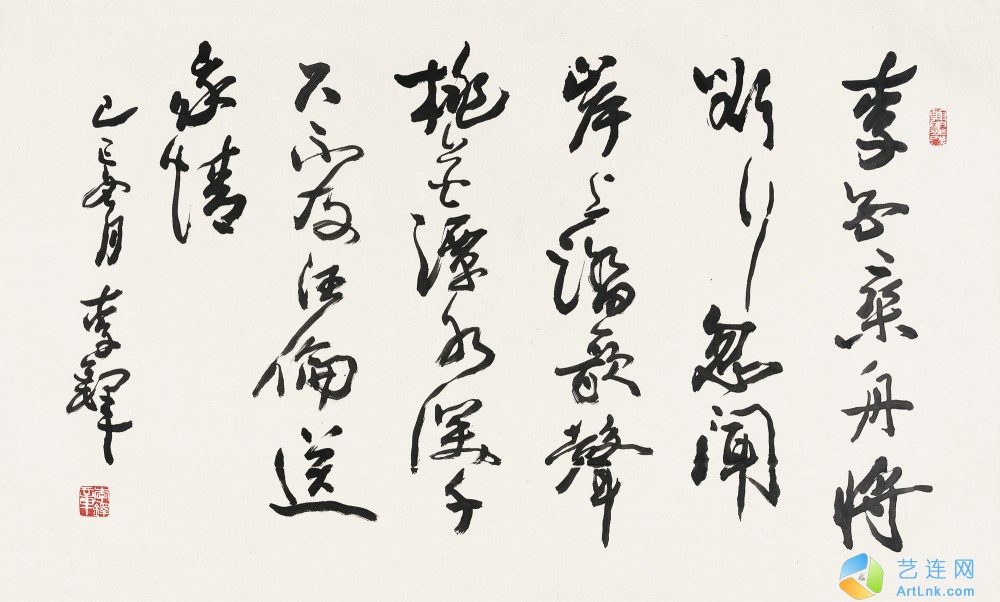 李白乘舟將
欲行忽聞
岸上踏歌聲
桃花潭水深千
尺不及汪倫送
我情
己巳月 李鐸
艺连网
ArtLnk.com